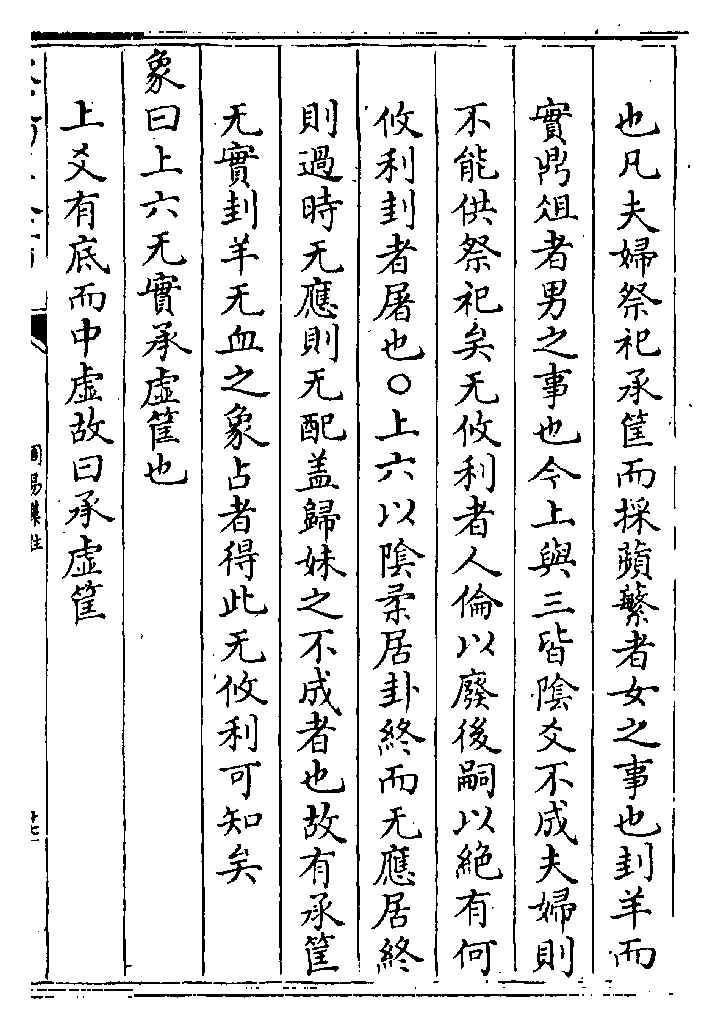 也凡夫婦祭祀承筐而採蘋蘩者女之事也刲羊而
實鼎俎者男之事也今上與三皆陰爻不成夫婦則
不能供祭祀矣无攸利者人倫以廢後嗣以絶有何
攸利刲者屠也○上六以陰柔居卦終而无應居終
則過時无應則无配盖歸妹之不成者也故有承筐
无實刲羊无血之象占者得此无攸利可知矣
象曰上六无實承虚筐也
上爻有底而中虚故曰承虚筐
周易集註